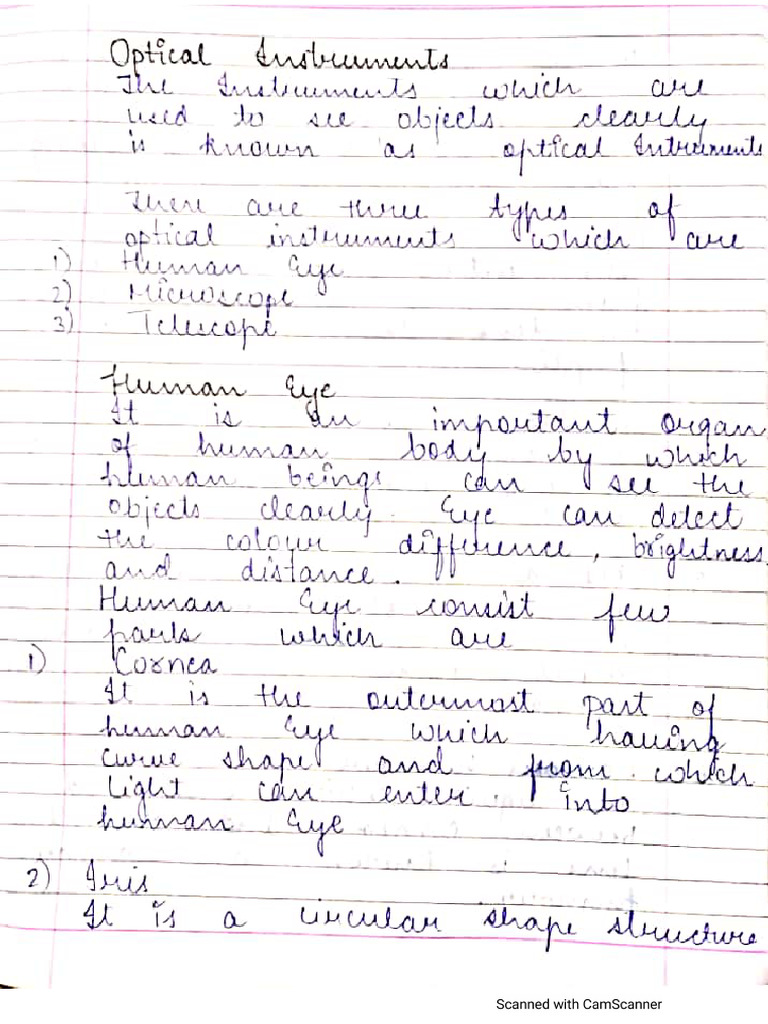 Optical Instruments
The Instruments which are
used to see objects clearly
is known as optical Intruments
There are three types of
optical instruments which are
1) Human Eye
2) Microscope
3) Telescope
Human Eye
It is an important organ
of human body by which
human beings can see the
objects clearly. Eye can detect
the colour difference, brightness
and distance.
Human Eye consist few
parts which are
1) Cornea
It is the outermost part of
human Eye which having
curve shape and from which
light can enter into
human Eye
2) Iris
It is a circular shape structure
Scanned with CamScanner